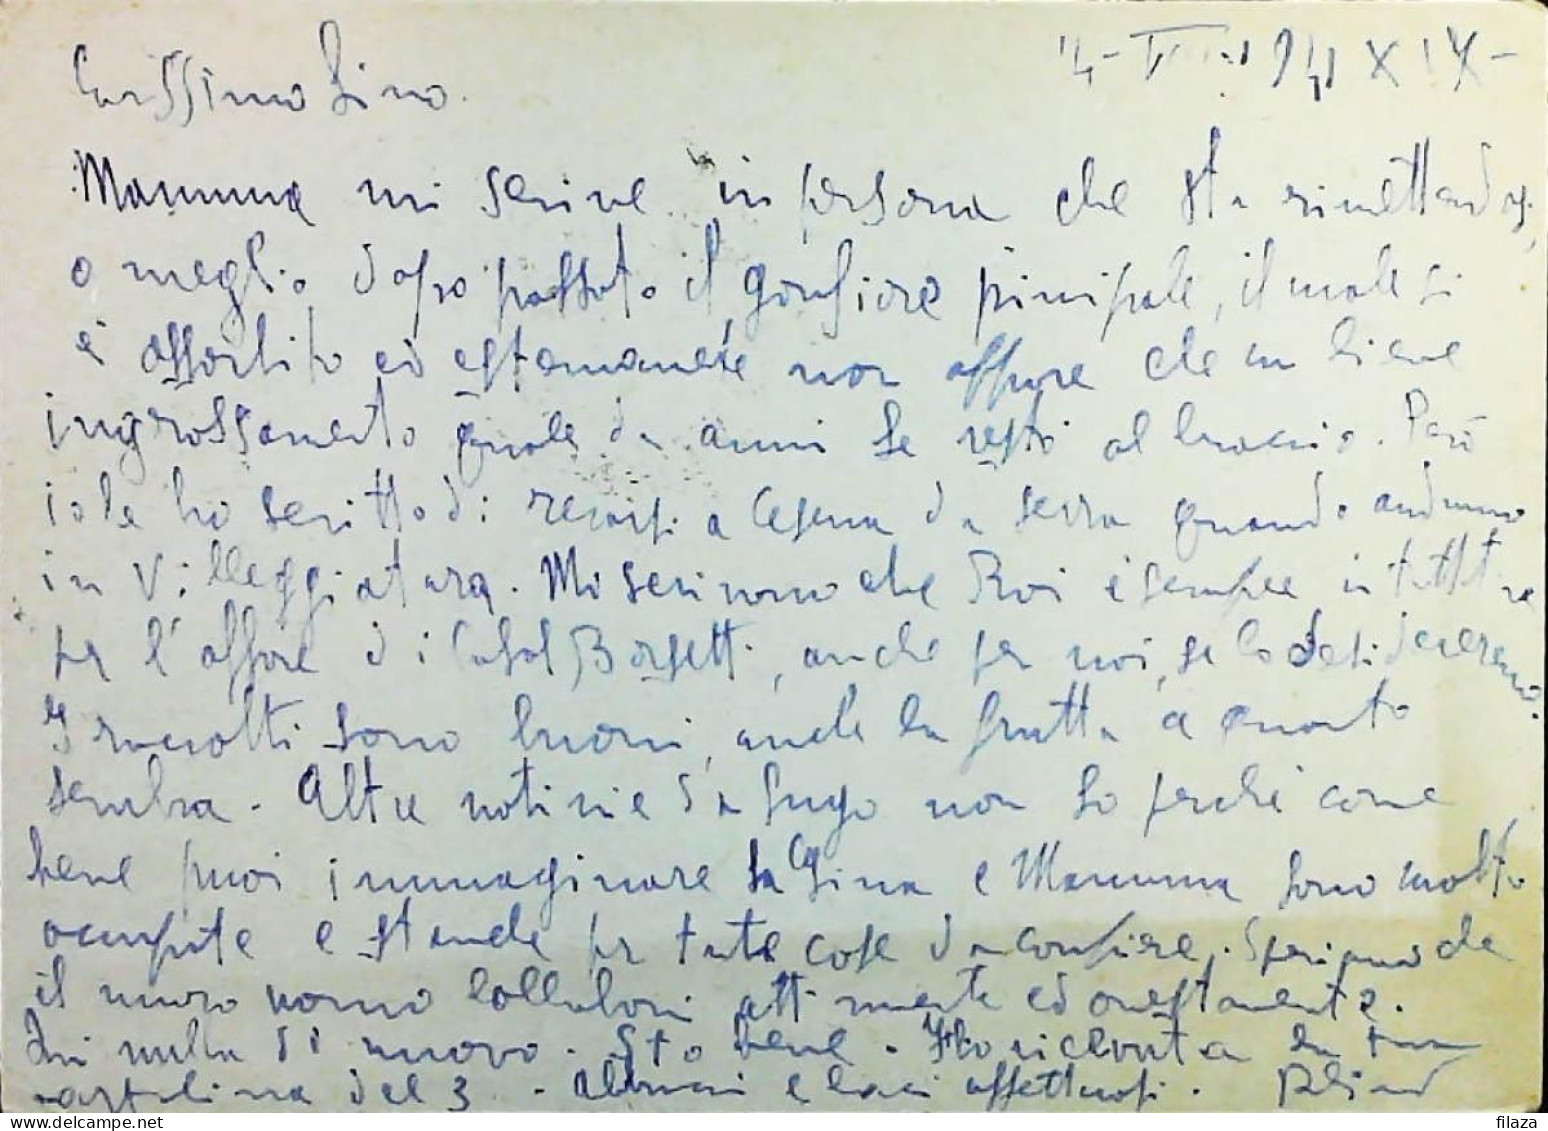 Carissimo Lino.
Mamma mi scrive in persona che sta rimettendosi,
o meglio dopo passato il gonfiore principale, il male si
è assorbito ed esternamente non appare che un lieve
ingrossamento quale da anni se resti al braccio. Però
io le ho scritto di recarsi a Cesena da Serra quando andranno
in Villeggiatura. Mi scrivono che Roi è sempre in
per l'affare di Casal Borsetti, anche per noi, se lo desidereremo.
I raccolti sono buoni, anche la frutta a quanto
sembra. Altre notizie da Lugo non so perché come
bene puoi immaginare la Gina e Mamma sono molto
occupate e stanche per tante cose da compiere. Speriamo che
il nuovo uomo collabori attivamente ed onestamente.
Qui nulla di nuovo. Sto bene. Ho ricevuta la tua
cartolina del 3. Abbracci e baci affettuosi.
filaza